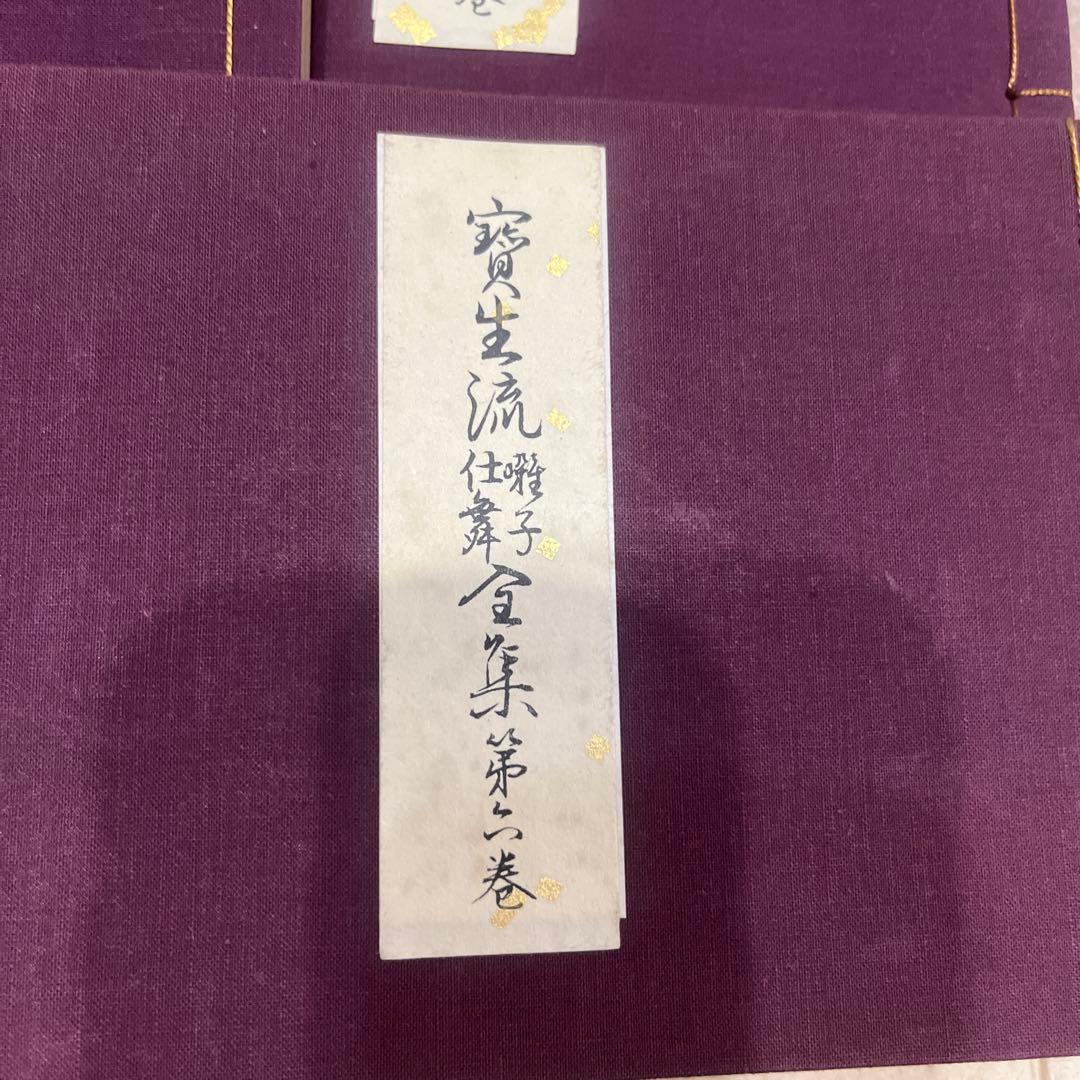 巻
寶生流囃子仕舞全集第六巻